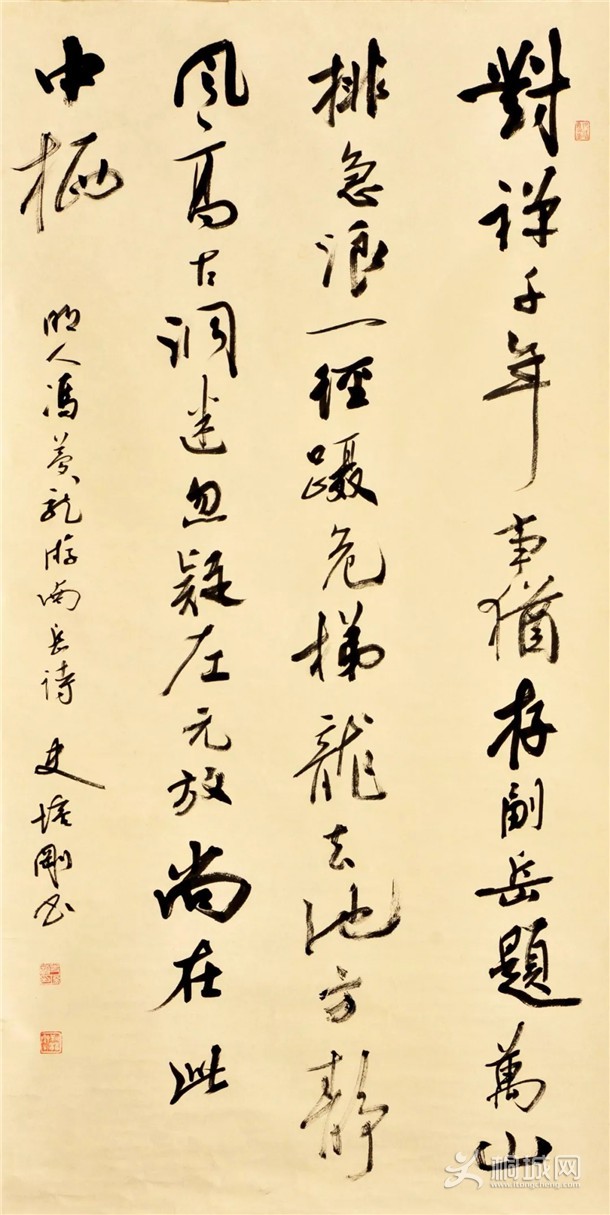 對禅千年事猶存副岳題萬山
排急浪一徑蹑危梯龍去池方静
风高古洞迷忽疑左元放尚在此
中栖
明人馮夢龍游南岳诗 史培剛书
桐城网
www.itongcheng.com